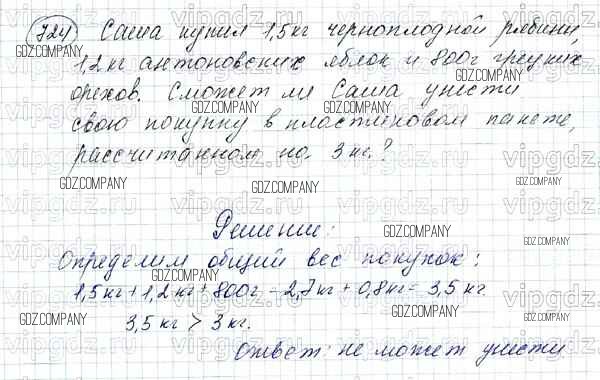 724 Саша купил 1,5кг черноплодной рябины,
1,2 кг антоновских яблок и 800г грецких
орехов. Сможет ли Саша унести
свою покупку в пластиковом пакете,
рассчитанном на 3 кг.?
Решение:
Определим общий вес покупок:
1,5кг + 1,2 кг + 800г = 2,7кг + 0,8кг = 3,5 кг
3,5 кг > 3 кг.
Ответ: не может унести